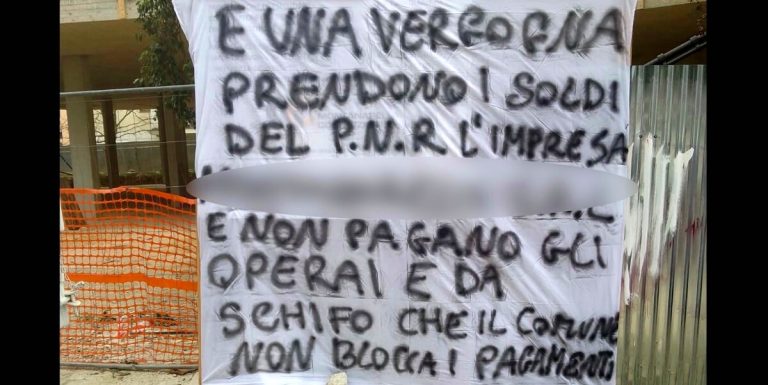 E UNA VERGOGNA
PRENDONO I SOLDI
DEL P.N.R L'IMPRESA
E NON PAGANO GLI
OPERAI E DA
SCHIFO CHE IL COMUNE
NON BLOCCA I PAGAMENTI